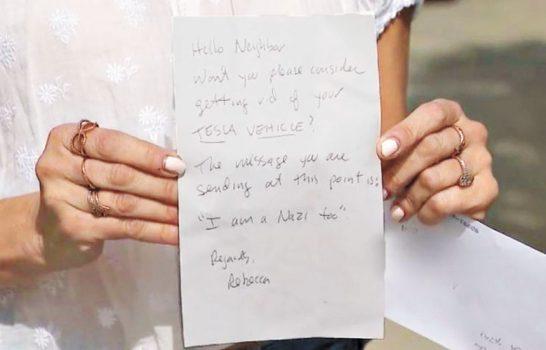 Hello Neighbor
Won't you please consider
getting rid of your
TESLA VEHICLE?
The message you are
sending at this point is:
"I am a Nazi too".
Regards,
Rebecca